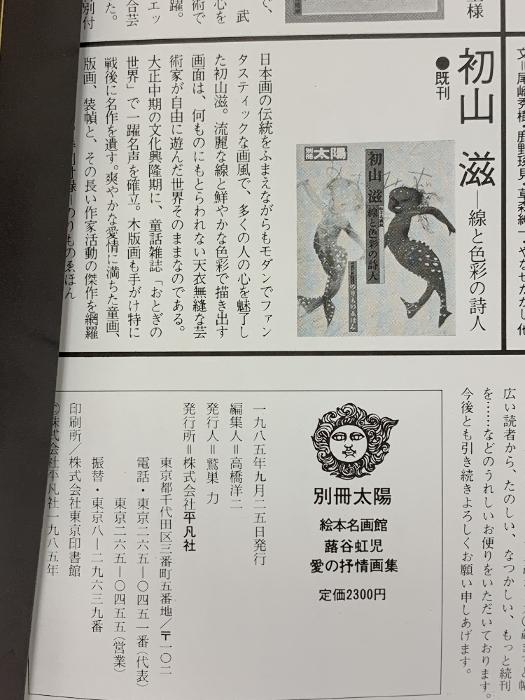 初山 滋―線と色彩の詩人
●既刊
別冊太陽
初山 滋
線と色彩の詩人
日本画の伝統をふまえながらもモダンでファン
タスティックな画風で、多くの人の心を魅了し
た初山滋。流麗な線と鮮やかな色彩で描き出す
画面は、何ものにもとらわれない天衣無縫な芸
術家が自由に遊んだ世界そのままなのである。
大正中期の文化興隆期に、童話雑誌「おとぎの
世界」で一躍名声を確立。木版画も手がけ特に
戦後に名作を遺す。爽やかな愛情に満ちた童画、
版画、装幀と、その長い作家活動の傑作を網羅
広い読者から、たのしい、なつかしい、もっと続刊
を……などのうれしいお便りをいただいております。
今後とも引き続きよろしくお願い申しあげます。
別冊太陽
絵本名画館
蕗谷虹児
愛の抒情画集
定価2300円
一九八五年九月二五日発行
編集人＝高橋洋二
発行人＝鷲巣 力
発行所＝株式会社平凡社
東京都千代田区三番町五番地／〒一〇二
電話・東京二六五―〇四五一番(代表)
東京二六五―〇四五五(営業)
振替・東京八―二九六三九番
印刷所／株式会社東京印書館
©株式会社平凡社一九八五年